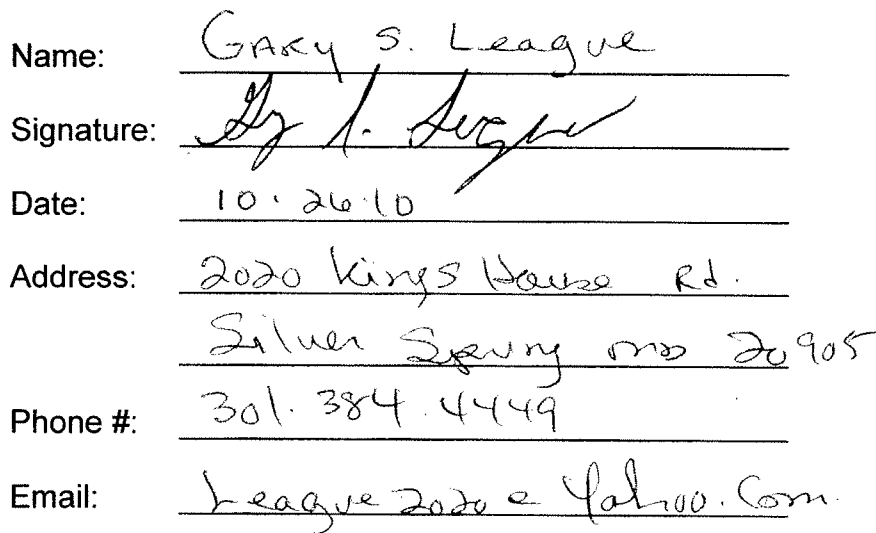 Name: Gary S. League
Signature:
Date: 10.26.10
Address: 2020 Kings House Rd.
Silver Spring MD 20905
Phone #: 301.384.4449
Email: League2020@Yahoo.Com